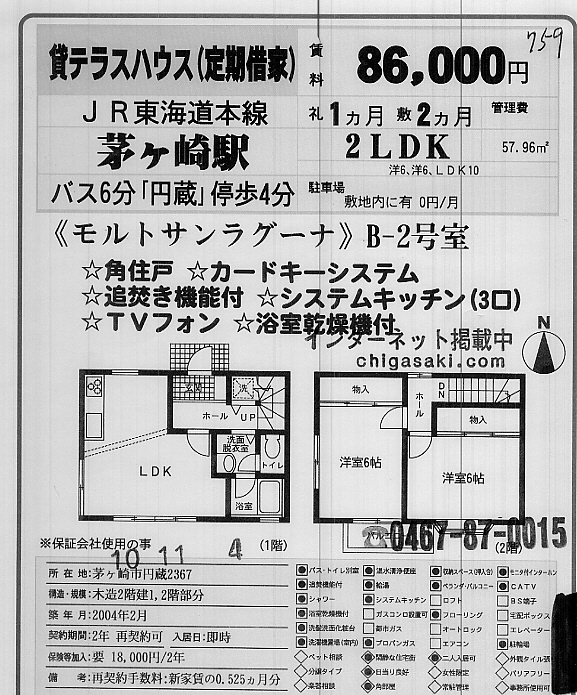 759
貸テラスハウス(定期借家)
賃料 86,000円
JR東海道本線
礼 1ヵ月 敷 2ヵ月 管理費
茅ヶ崎駅
2LDK 57.96㎡
洋6、洋6、LDK10
バス6分「円蔵」停歩4分
駐車場 敷地内に有 0円/月
《モルトサンラグーナ》B-2号室
☆角住戸 ☆カードキーシステム
☆追焚き機能付 ☆システムキッチン(3口)
☆TVフォン ☆浴室乾燥機付
インターネット掲載中
chigasaki.com
N
玄関
洗
ホール
UP
洗面脱衣室
トイレ
LDK
浴室
(1階)
物入
ホール
DN
物入
洋室6帖
洋室6帖
バルコニー
(2階)
☎0467-87-0015
※保証会社使用の事
10 11 4
所在地:茅ヶ崎市円蔵2367
構造・規模:木造2階建1,2階部分
築年月:2004年2月
契約期間:2年 再契約可 入居日:即時
保険等加入:要 18,000円/2年
備考:再契約手数料:新家賃の0.525ヵ月分
バス・トイレ別室 温水洗浄便座 収納スペース(押入含) モニタ付インターホン
追焚機能付 給湯 ベランダ・バルコニー CATV
シャワー システムキッチン ロフト BS端子
浴室乾燥機付 ガスコンロ設置可 フローリング 宅配ボックス
洗髪洗面化粧台 都市ガス オートロック エレベーター
洗濯機置場(室内) プロパンガス エアコン 駐輪場
ペット相談 閑静な住宅街 二人入居可 外観タイル張
分譲タイプ 日当り良好 女性限定 バリアフリー
楽器相談 角部屋 常駐管理 事務所使用可